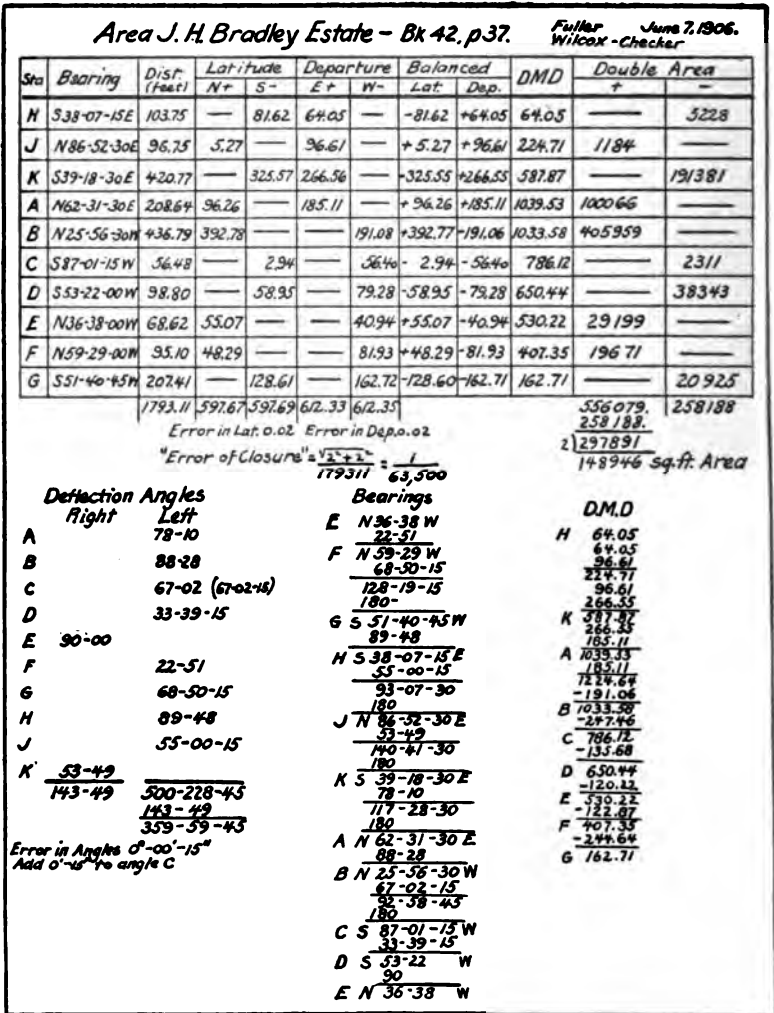 Area J. H. Bradley Estate - Bk 42, p 37. Fuller June 7, 1906.
Wilcox - Checker
Sta Bearing Dist. (feet) Latitude Departure Balanced DMD Double Area
N+ S- E+ W- Lat. Dep. + -
H S38-07-15E 103.75 — 81.62 64.05 — -81.62 +64.05 64.05 — 5228
J N86-52-30E 96.75 5.27 — 96.61 — +5.27 +96.61 224.71 1184 —
K S39-18-30E 420.77 — 325.57 266.56 — -325.55 +266.55 587.87 — 191381
A N62-31-30E 208.64 96.26 — 185.11 — +96.26 +185.11 1039.53 100066 —
B N25-56-30W 436.79 392.78 — — 191.08 +392.77 -191.06 1033.58 405959 —
C S87-01-15W 56.48 — 2.94 — 56.40 - 2.94 - 56.40 786.12 — 2311
D S53-22-00W 98.80 — 58.95 — 79.28 -58.95 -79.28 650.44 — 38343
E N36-38-00W 68.62 55.07 — — 40.94 +55.07 -40.94 530.22 29199 —
F N59-29-00W 95.10 48.29 — — 81.93 +48.29 -81.93 407.35 19671 —
G S51-40-45W 207.41 — 128.61 — 162.72 -128.60 -162.71 162.71 — 20925
1793.11 597.67 597.69 612.33 612.35 556079. 258188
Error in Lat. 0.02 Error in Dep. 0.02 258188.
2)297891
"Error of Closure" = √2²+2² / 179311 = 1 / 63,500 148946 sq.ft. Area
Deflection Angles
Right Left
A 78-10
B 88-28
C 67-02 (67-02-15)
D 33-39-15
E 90-00
F 22-51
G 68-50-15
H 89-48
J 55-00-15
K 53-49
143-49 500-228-45
143-49
359-59-45
Error in Angles 0°-00'-15"
Add 0'-15" to angle C
Bearings
E N36-38 W
22-51
F N 59-29 W
68-50-15
128-19-15
180-
G S 51-40-45W
89-48
H S 38-07-15 E
55-00-15
93-07-30
180
J N 86-52-30 E
53-49
140-41-30
180
K S 39-18-30 E
78-10
117-28-30
180
A N 62-31-30 E
88-28
B N 25-56-30 W
67-02-15
92-58-45
180
C S 87-01-15 W
33-39-15
D S 53-22 W
90
E N 36-38 W
D.M.D
H 64.05
64.05
96.61
224.71
96.61
266.55
K 587.87
266.55
185.11
A 1039.53
185.11
1224.64
-191.06
B 1033.58
-247.46
C 786.12
-135.68
D 650.44
-120.22
E 530.22
-122.87
F 407.35
-244.64
G 162.71